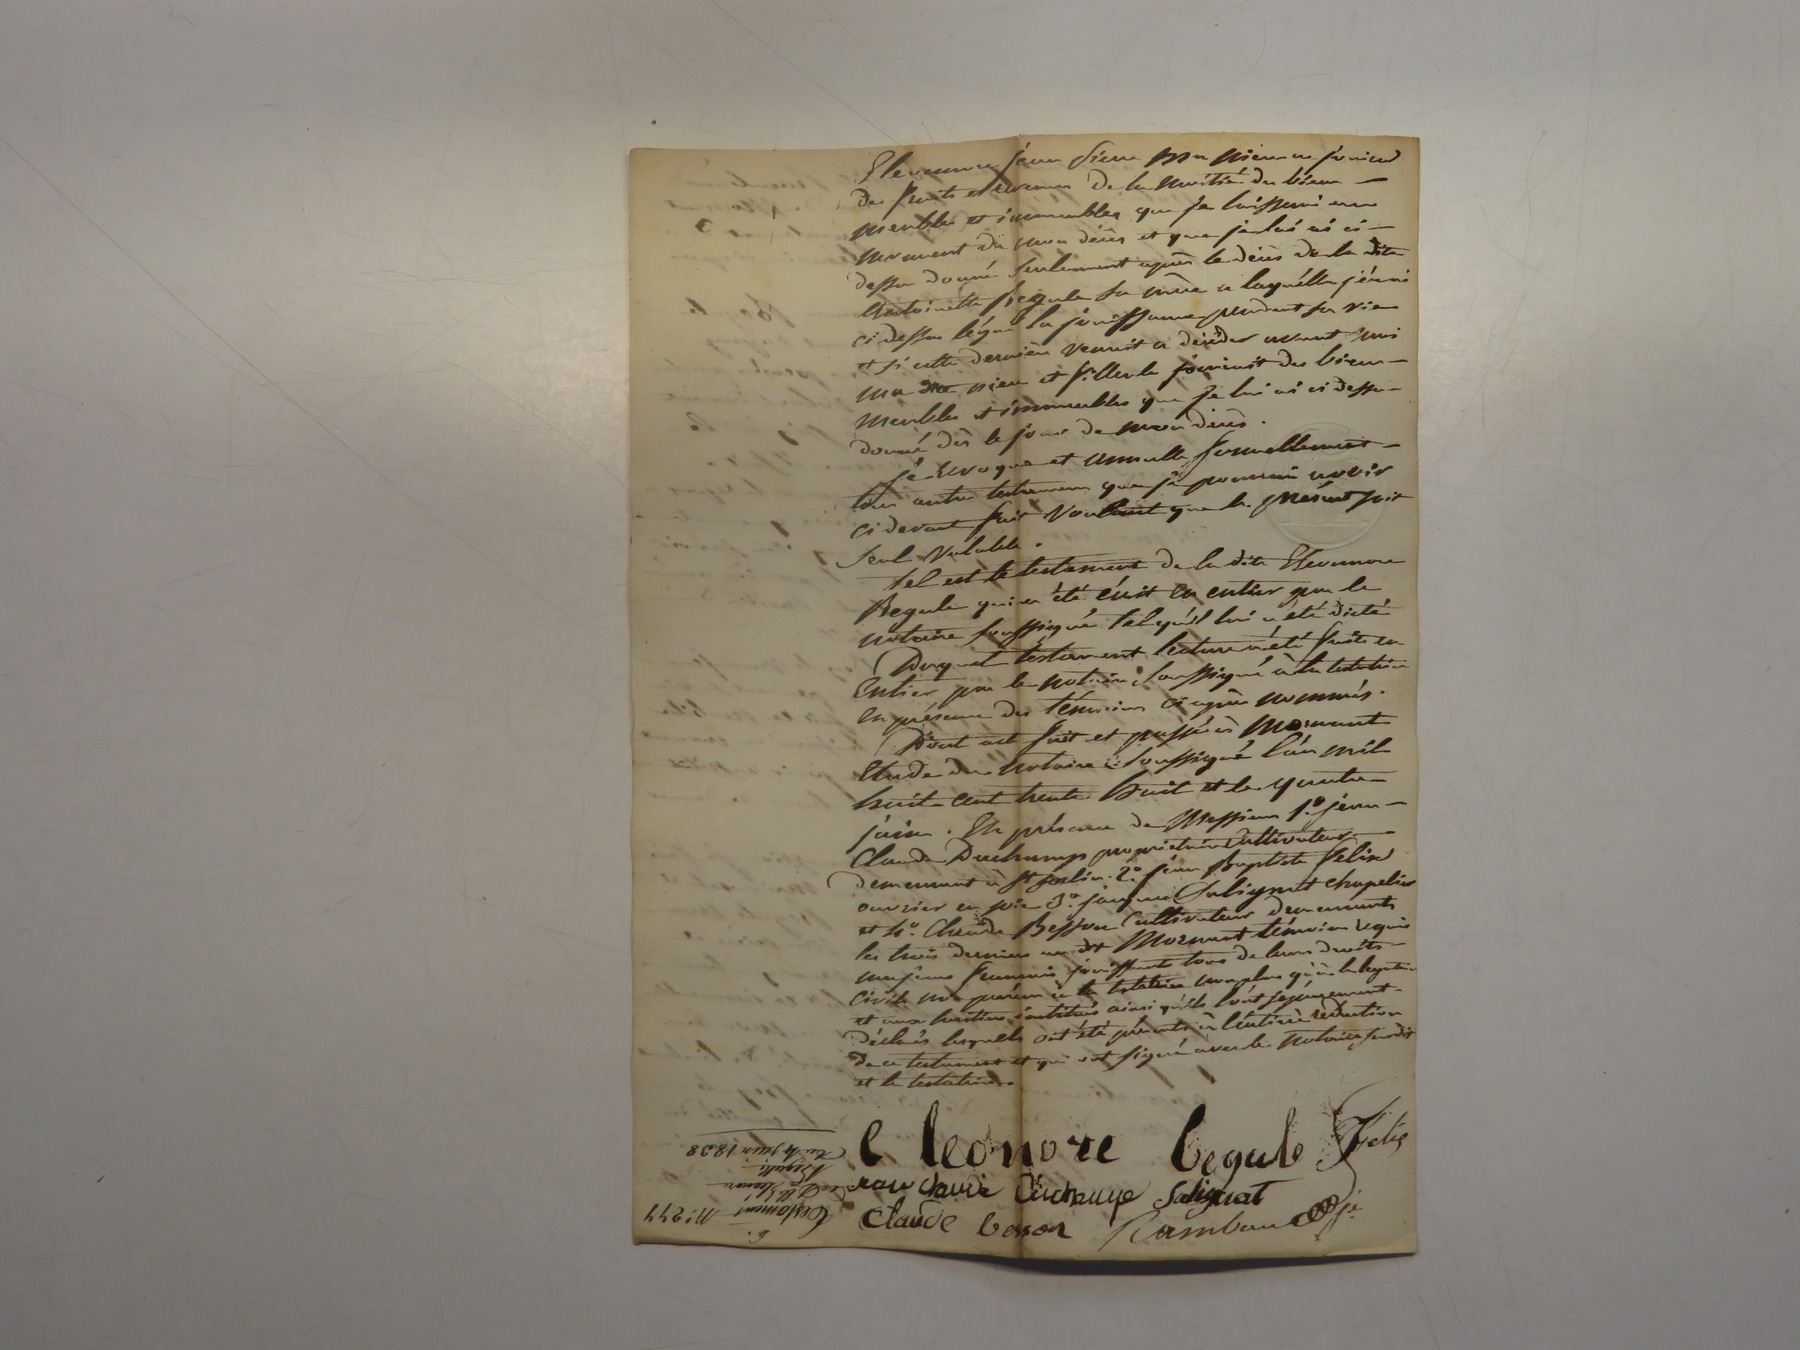 Eleonore jean Pierre ma niece ne jouira
des fruits et revenus de la moitié des biens
meubles et immeubles que je laisserai au
moment de mon décès et que je lui ai ci
dessus donné seulement après le décès de la dite
Antoinette Begule sa mère a laquelle j'ai
ci dessus légué la jouissance pendant sa vie
et si cette dernière venait a décéder avant moi
ma niece et filleule jouirait des biens
meubles et immeubles que je lui ai ci dessus
donné dès le jour de mon décès.
je revoque et annulle formellement
tous autres testamens que je pourrais avoir
ci devant fait voulant que le présent soit
seul valable.
tel est le testament de la dite Eleonnore
Begule qui a été écrit en entier par le
notaire soussigné tel qu'il lui a été dicté
Duquel testament lecture a été faite en
entier par le notaire soussigné à la testatrice
en présence des témoins ci après nommés.
Dont acte fait et passé à Mornant
Etude du notaire soussigné l'an mil
huit cent trente huit et le quatre
juin. En présence de Messieurs 1º. jean
Claude Duchamp propriétaire cultivateur
demeurant à St Sorlin. 2º. jean Baptiste Felix
ouvrier en soie 3º. jacques Salignat chapelier
et 4º. Claude Besson cultivateur demeurants
les trois derniers au dt Mornant témoins requis
majeurs français jouissant tous de leurs droits
civils non parens à la testatrice non plus qu'à la legataire
et aux héritiers institués ainsi qu'ils l'ont séparément
déclaré lesquels ont été présents à l'entière rédaction
de ce testament et qui ont signé avec le notaire susdit
et la testatrice.
eleonore begule Felix
jean claude Duchampt Salignat
Claude besson Rambaud
Nº. 244
Testament
de Dlle Eleonore
Begule
Du 4 juin 1838